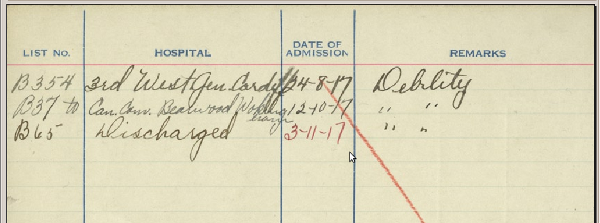 LIST No. HOSPITAL DATE OF ADMISSION REMARKS
B354 3rd West Gen. Cardiff 24-8-17 Debility
B37 to Can. Con. Bearwood Wokingham 12-10-17 " "
B65 Discharged 3-11-17 " "